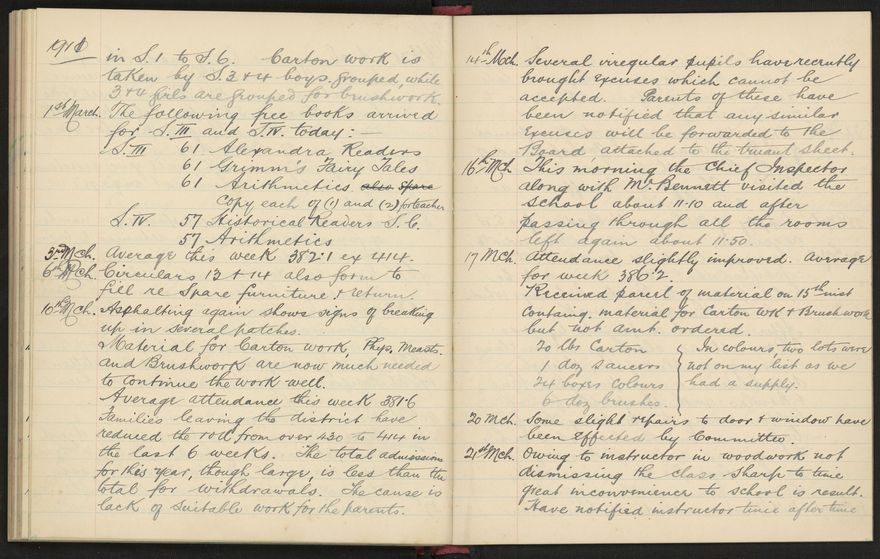 1911
in S.1 to S.6. Carton work is
taken by S.3+4 boys grouped, while
3+4 girls are grouped for brushwork.
1st March. The following free books arrived
for S.III and S.IV. today:—
S.III 61 Alexandra Readers
61 Grimm's Fairy Tales
61 Arithmetics also Spare
Copy each of (1) and (2) for teacher
S.IV. 57 Historical Readers S.C.
57 Arithmetics
3rd Mch. Average this week 382·1 ex 414.
6th Mch. Circulars 13 + 14 also form to
fill re Spare furniture + return.
10th Mch. Asphalting again shows signs of breaking
up in several patches.
Material for Carton work, Phys. Measts.
and Brushwork are now much needed
to continue the work well.
Average attendance this week 381·6
Families leaving the district have
reduced the roll from over 430 to 414 in
the last 6 weeks. The total admissions
for this year, though large, is less than the
total for withdrawals. The cause is
lack of suitable work for the parents.
14th Mch. Several irregular pupils have recently
brought excuses which cannot be
accepted. Parents of these have
been notified that any similar
excuses will be forwarded to the
Board attached to the truant sheet.
16th Mch This morning the Chief Inspector
along with Mr Bennett visited the
school about 11·10 and after
passing through all the rooms
left again about 11·50.
17 Mch. Attendance slightly improved. Average
for week 386·2
Received parcel of material on 15th inst
containg. material for Carton wk + Brushwork
but not amt. ordered.
20 lbs Carton
1 doz saucers
24 boxes colours
6 doz brushes.
In colours, two lots were
not on my list as we
had a supply.
20 Mch. Some slight repairs to door + window have
been effected by Committee.
21st Mch. Owing to instructor in woodwork not
dismissing the class sharp to time
great inconvenience to school is result.
Have notified instructor time after time